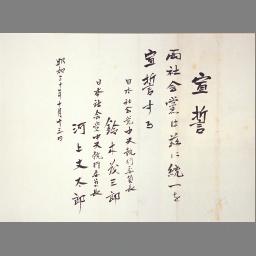 宣誓
両社会党は茲に統一を
宣誓する
日本社会党中央執行委員長
鈴木茂三郎
日本社会党中央執行委員長
河上丈太郎
昭和三十年十月十三日